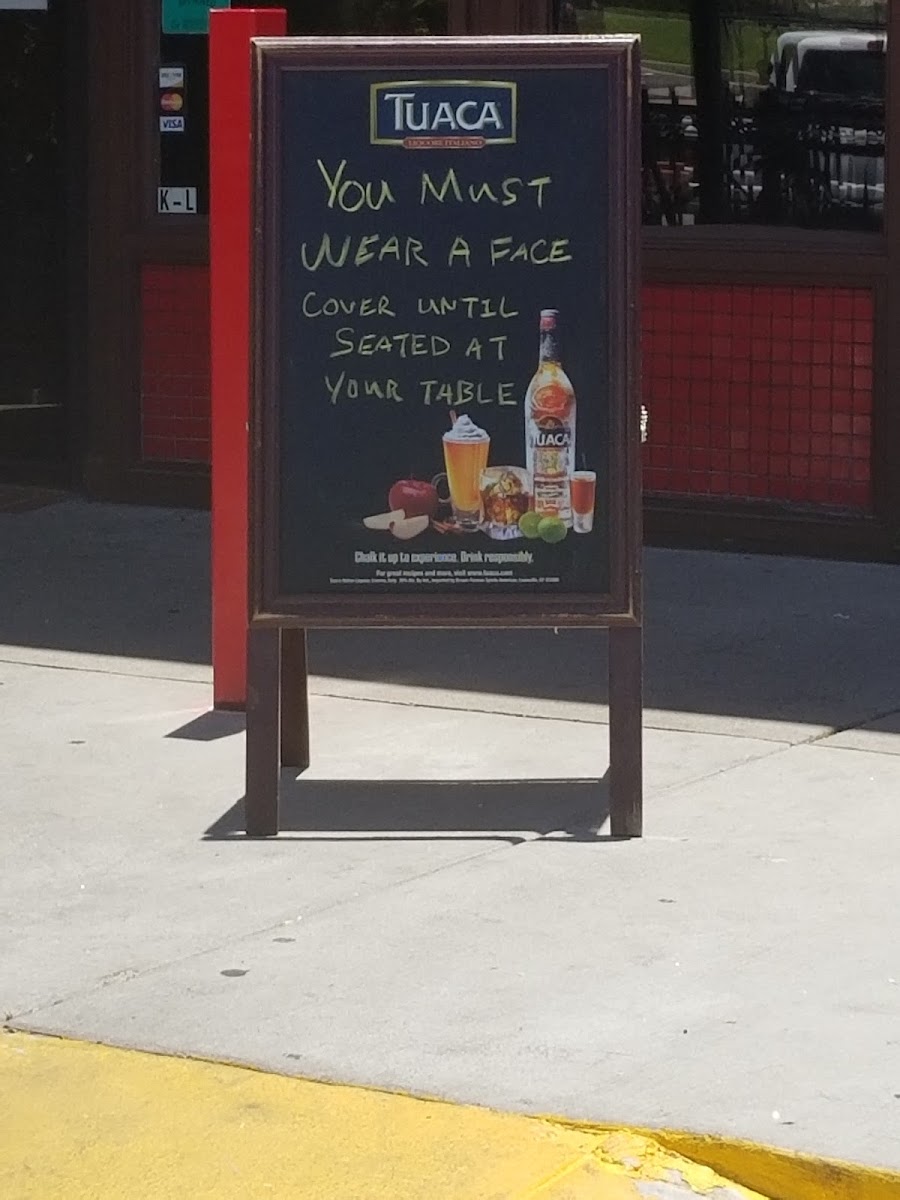 VISA
K-L
TUACA
LIQUORE ITALIANO
YOU MUST
WEAR A FACE
COVER UNTIL
SEATED AT
YOUR TABLE
TUACA
Chalk it up to experience. Drink responsibly.
For great recipes and more, visit www.tuaca.com